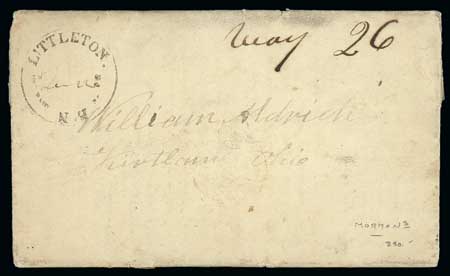 LITTLETON.
N.H.
May 26
William Aldrich
Kirtland Ohio
MORMON